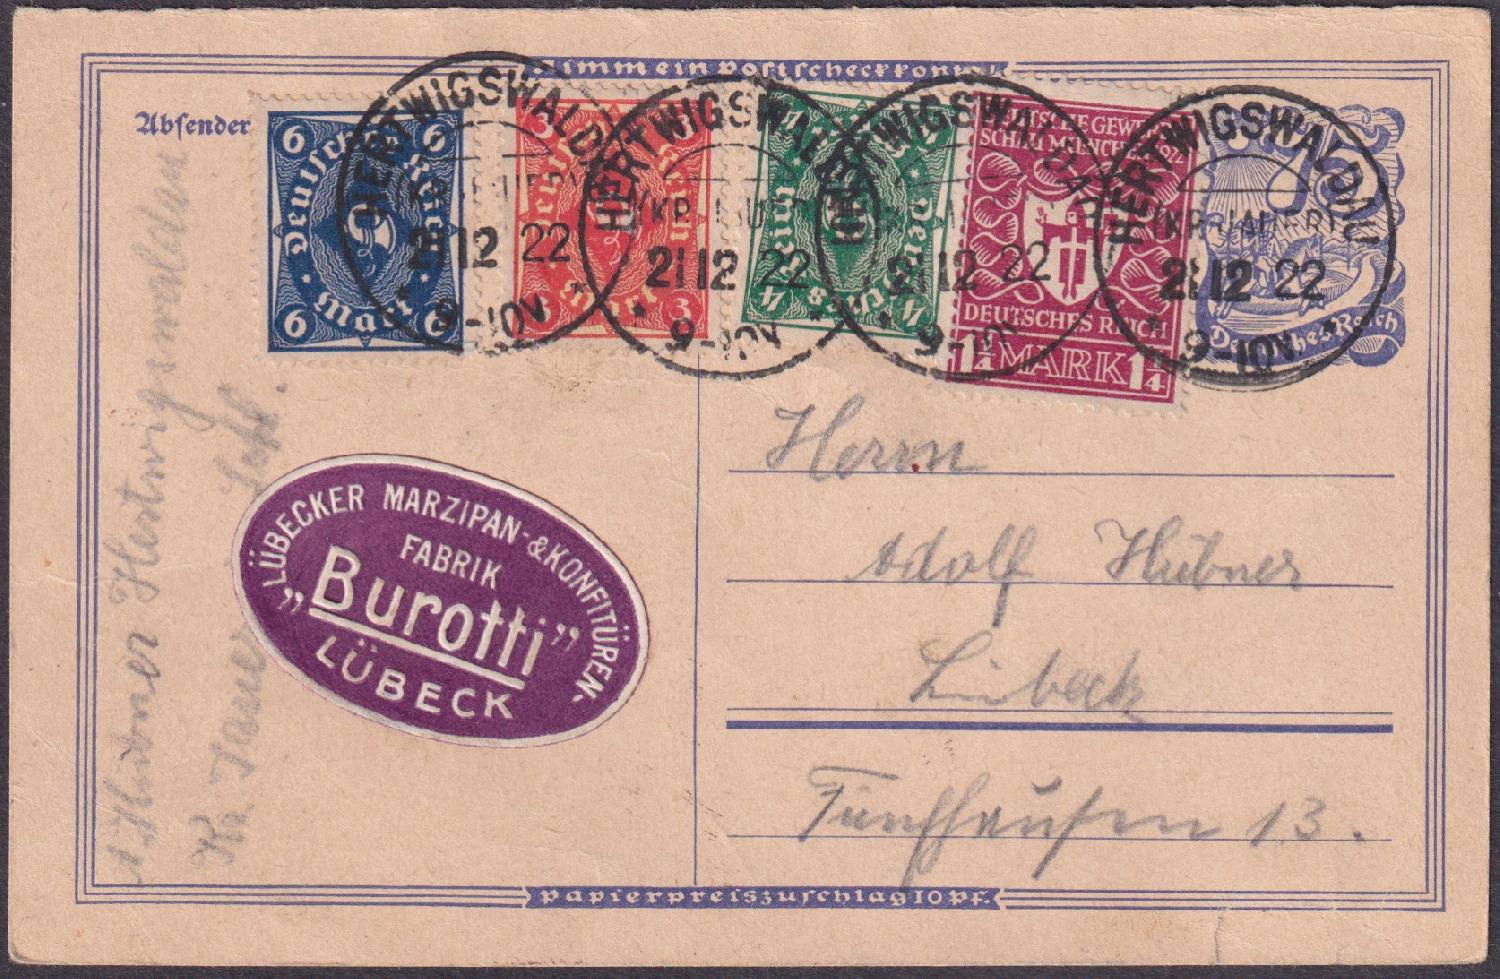 Nimm ein Postscheckkonto
Absender
6 6
Deutsches Reich
6 Mark 6
3 3
Deutsches Reich
3 Mark 3
4 4
Deutsches Reich
4 Mark 4
DEUTSCHE GEWERBE
SCHAU MÜNCHEN 1922
DEUTSCHES REICH
1¼ MARK 1¼
75
Deutsches Reich
HERTWIGSWALDAU
(KR. JAUER)
21 12 22
9-10V.
HERTWIGSWALDAU
(KR. JAUER)
21 12 22
9-10V.
HERTWIGSWALDAU
21 12 22
9-10V.
HERTWIGSWALDAU
(KR. JAUER)
21 12 22
9-10V.
Hübner Hertwigswaldau
Kr. Jauer Schl.
LÜBECKER MARZIPAN- & KONFITÜREN-
FABRIK
„Burotti”
LÜBECK
Herrn
Adolf Hübner
Lübeck
Fünfhausen 13.
Papierpreiszuschlag 10 Pf.